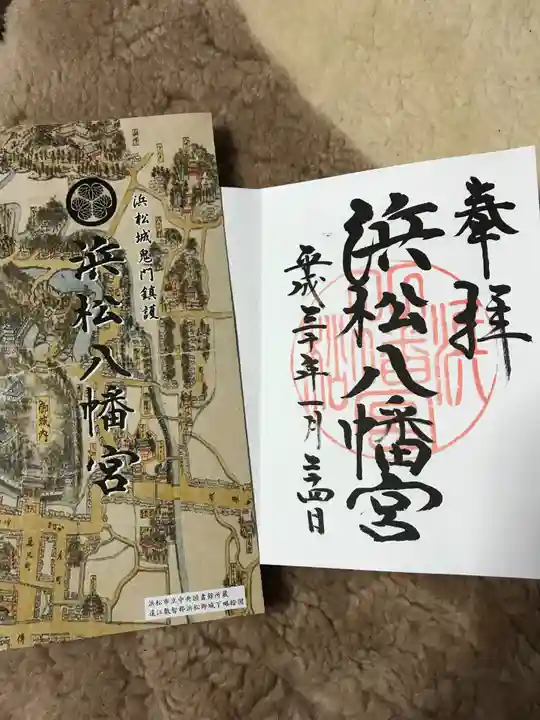 奉拝
浜松八幡宮
平成三十年一月二十四日
浜松城鬼門鎮護
浜松八幡宮
御城内
浜松市立中央図書館所蔵
遠江敷智郡浜松御城下略絵図